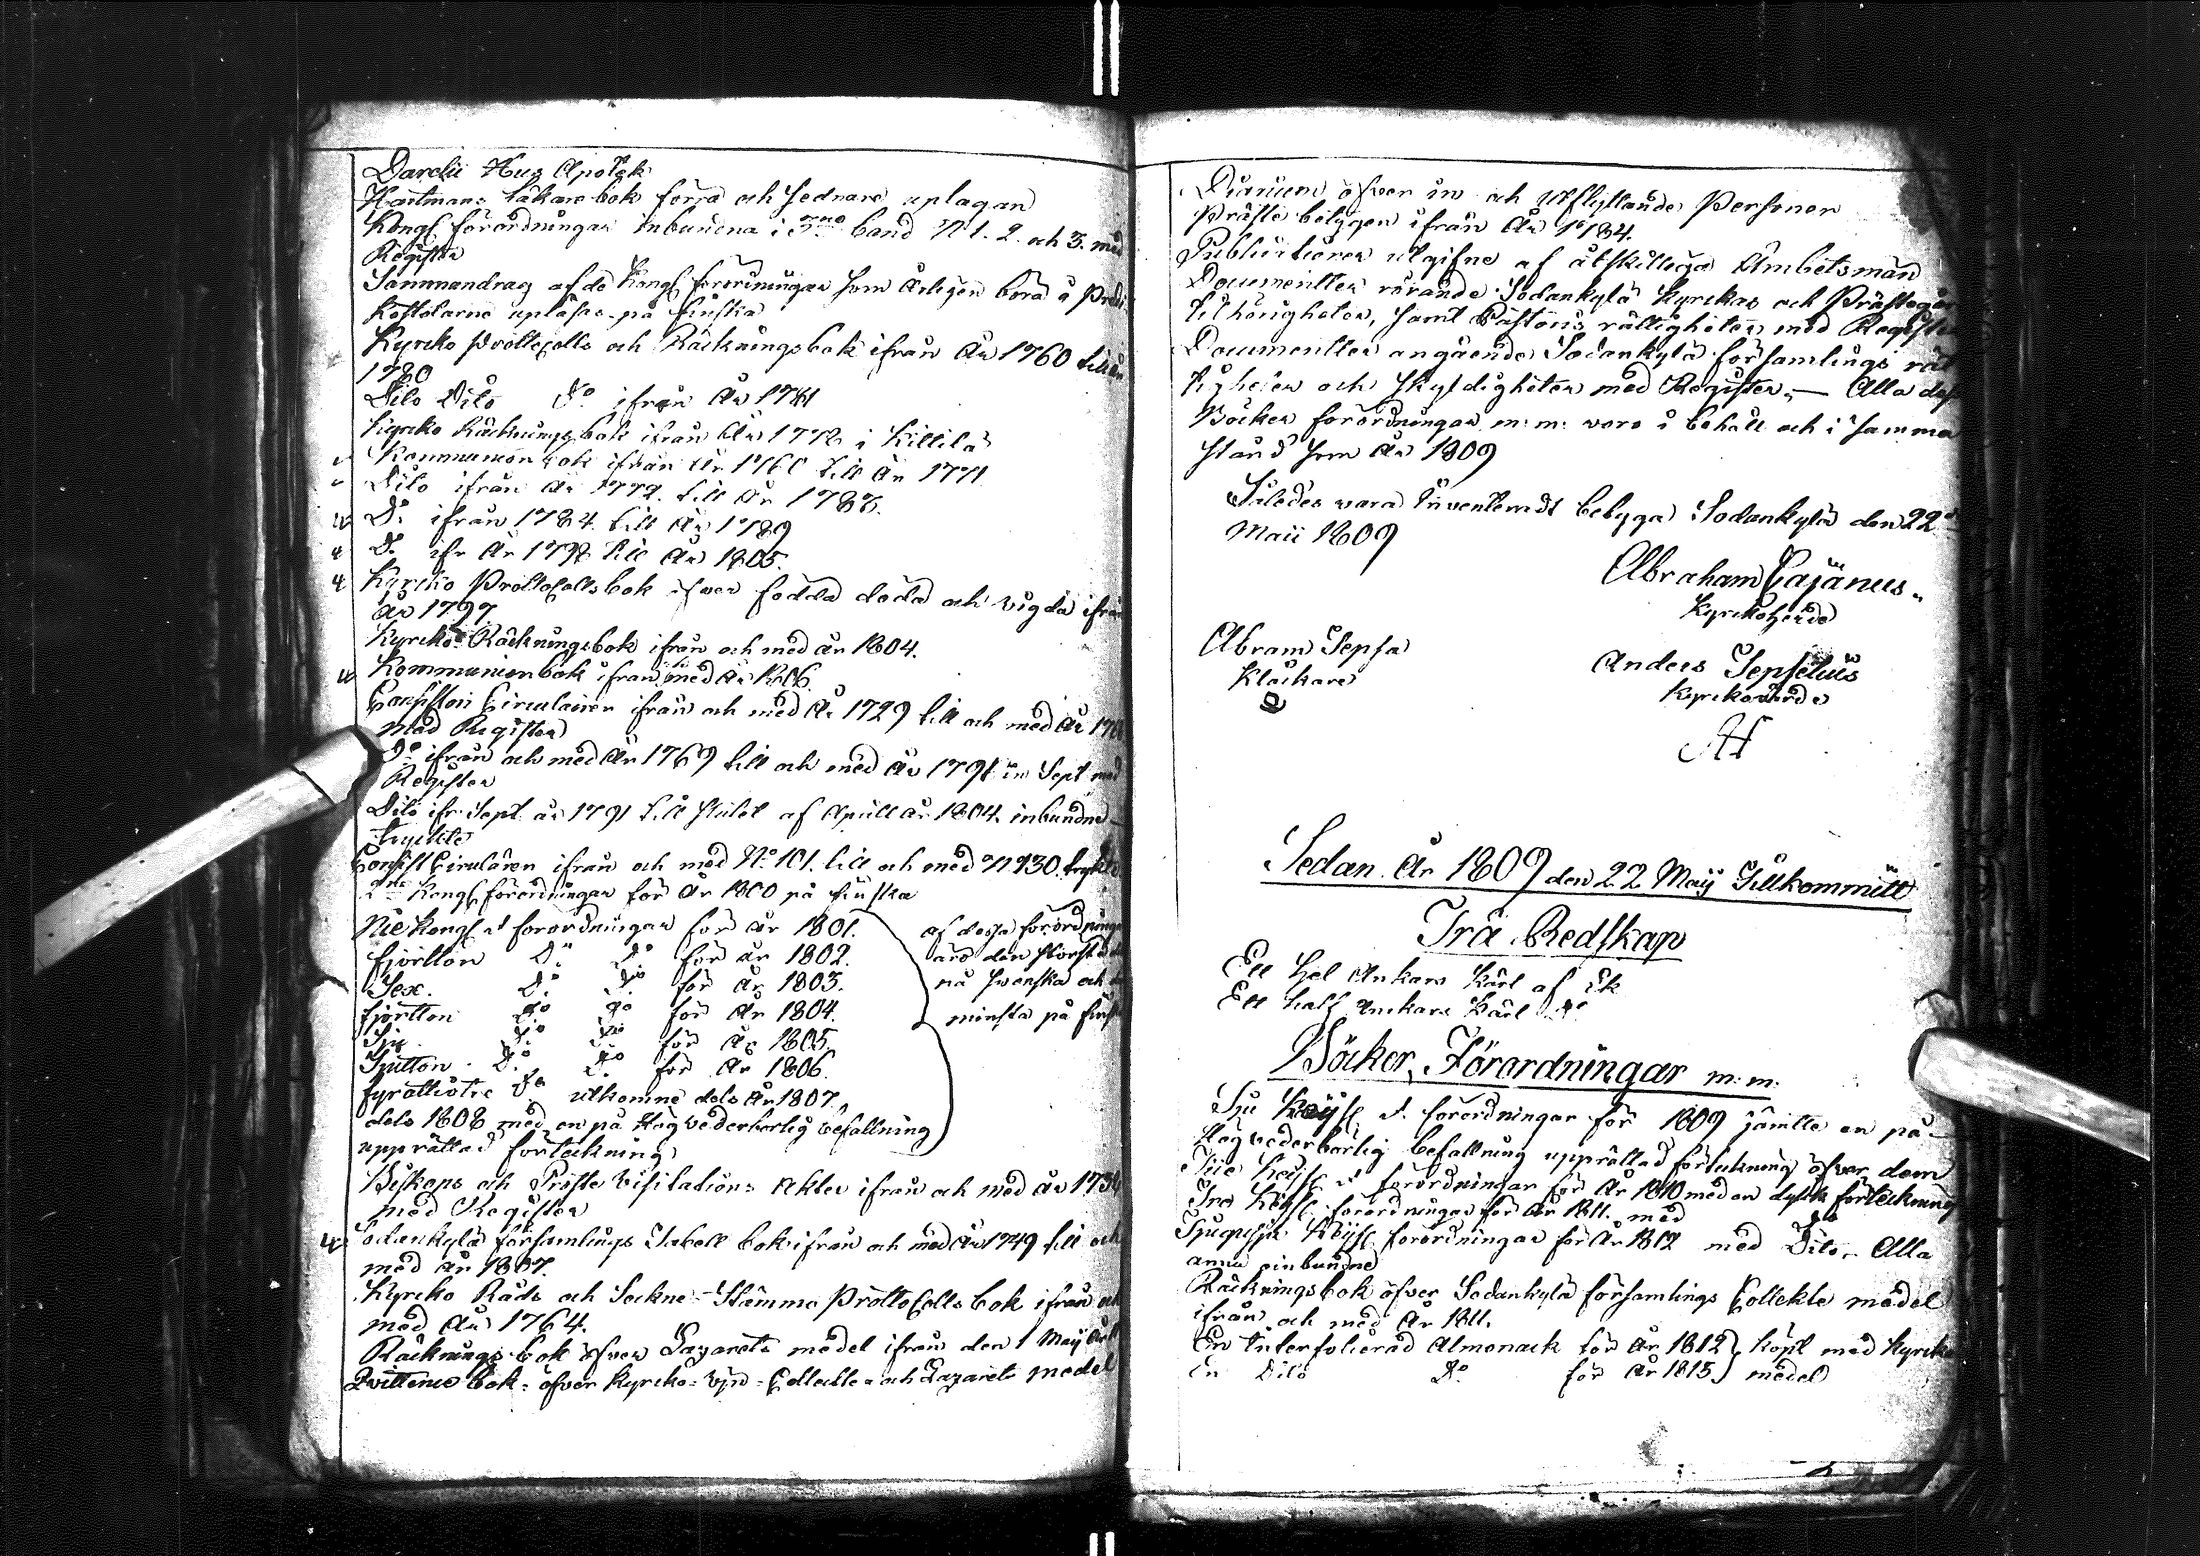 Darelii Hus Apotek
Hartmans Läkare bok förra och sednare uplagan
Kongl förordningar inbundna i 3ne band N 1. 2. och 3. med
Register
Sammandrag af de Kongl förordningar som årligen böra å Predi-
kostolarne upläsas på finska
Kyrcko Prottocolls och Räckningsbok ifrån År 1760 till
1780
Dito Dito Do ifrån År 1781
Kyrcko Räcknings bok ifrån År 1772 i Kittilä
Kommunion bok ifrån År 1760 till År 1771
Dito ifrån År 1772 till År 1783.
Do ifrån 1784 till År 1789
Do ifr År 1798 till År 1805.
Kyrcko Prottocollsbok öfver födda döda och vigda ifrån
År 1797.
Kyrcko Räckningsbok ifrån och med År 1804.
Kommunion bok ifrån med År 1806.
Consistorii Circulairer ifrån och med År 1729 till och med År
med Register
Do ifrån och med År 1769 till och med År 1791 in Sept med
Register
Dito ifr Sept. år 1791 till slutet af April År 1804. inbundne
tryckte
Consist Circulairer ifrån och med No 101. till och med N 130. tryckte
Kongl förordningar för År 1800 på finska
Nie Kongl förordningar för år 1801. af dessa förordningar
fjortton Do Do för år 1802. äro den största
Sex. Do Do för År 1803. på swenska och
fjortton Do Do för År 1804. minsta på finska
Sju Do Do för År 1805.
Sjutton Do Do för År 1806.
fyratiotre Do utkomne dels År 1807.
dels 1808 med en på Högvederbörlig befallning
upprättad förteckning
Biskops och Proste Visitations Akter ifrån och med År
med Register
Sodankylä församlings Tabell bok ifrån och med År 1749 till och
med År 1807.
Kyrcko Råds och Sockne-Stämmo Prottocolls bok ifrån och
med År 1764.
Räcknings bok öfver Lazarets medel ifrån den 1 Maij År
Qvittence bok öfver Kyrcko- Collecte- och Lazarets medel
Diarium öfver in och utflyttande Personer
Präste betygen ifrån År 1784.
Publicationer utgifne af åtskillige Ämbetsmän
Documenter rörande Sodankylä Kyrckas och Prästegårds
tilhörigheter, samt Pastoris rättigheter med Register
Documenter angående Sodankylä församlings rät-
tigheter och skyldigheter med Register. — Alla dessa
Böcker förordningar m: m: voro i behåll och i samma
stånd som År 1809
Således vara Inventeradt betyga Sodankylä den 22
Maii 1809
Abraham Cajanus.
Kyrckoherde
Abram Sepsa
Klåckare
Anders Sepselius
Kyrckovärde
Sedan År 1809 den 22 Maij Tillkommitt
Trä Redskap
Ett hel Ankars Kärl af Ek
Ett half Ankars Kärl Do
Böcker, Förordningar m: m:
Sju Keijsl förordningar för 1809 jämte en på
Högvederbörlig befallning upprättad förteckning öfver dem
Tiie Keijsl förordningar för År 1810 med en dylik förteckning
Tre Keijsl förordningar för År 1811. med Do
Tjugusju Keijsl förordningar för År 1812 med Dito. Alla
ännu oinbundne
Räckningsbok öfver Sodankylä församlings Collekte medel
ifrån och med År 1811.
En Interfolierad Almanack för År 1812 } köpt med Kyrcko
En Dito Do för År 1815 } medel